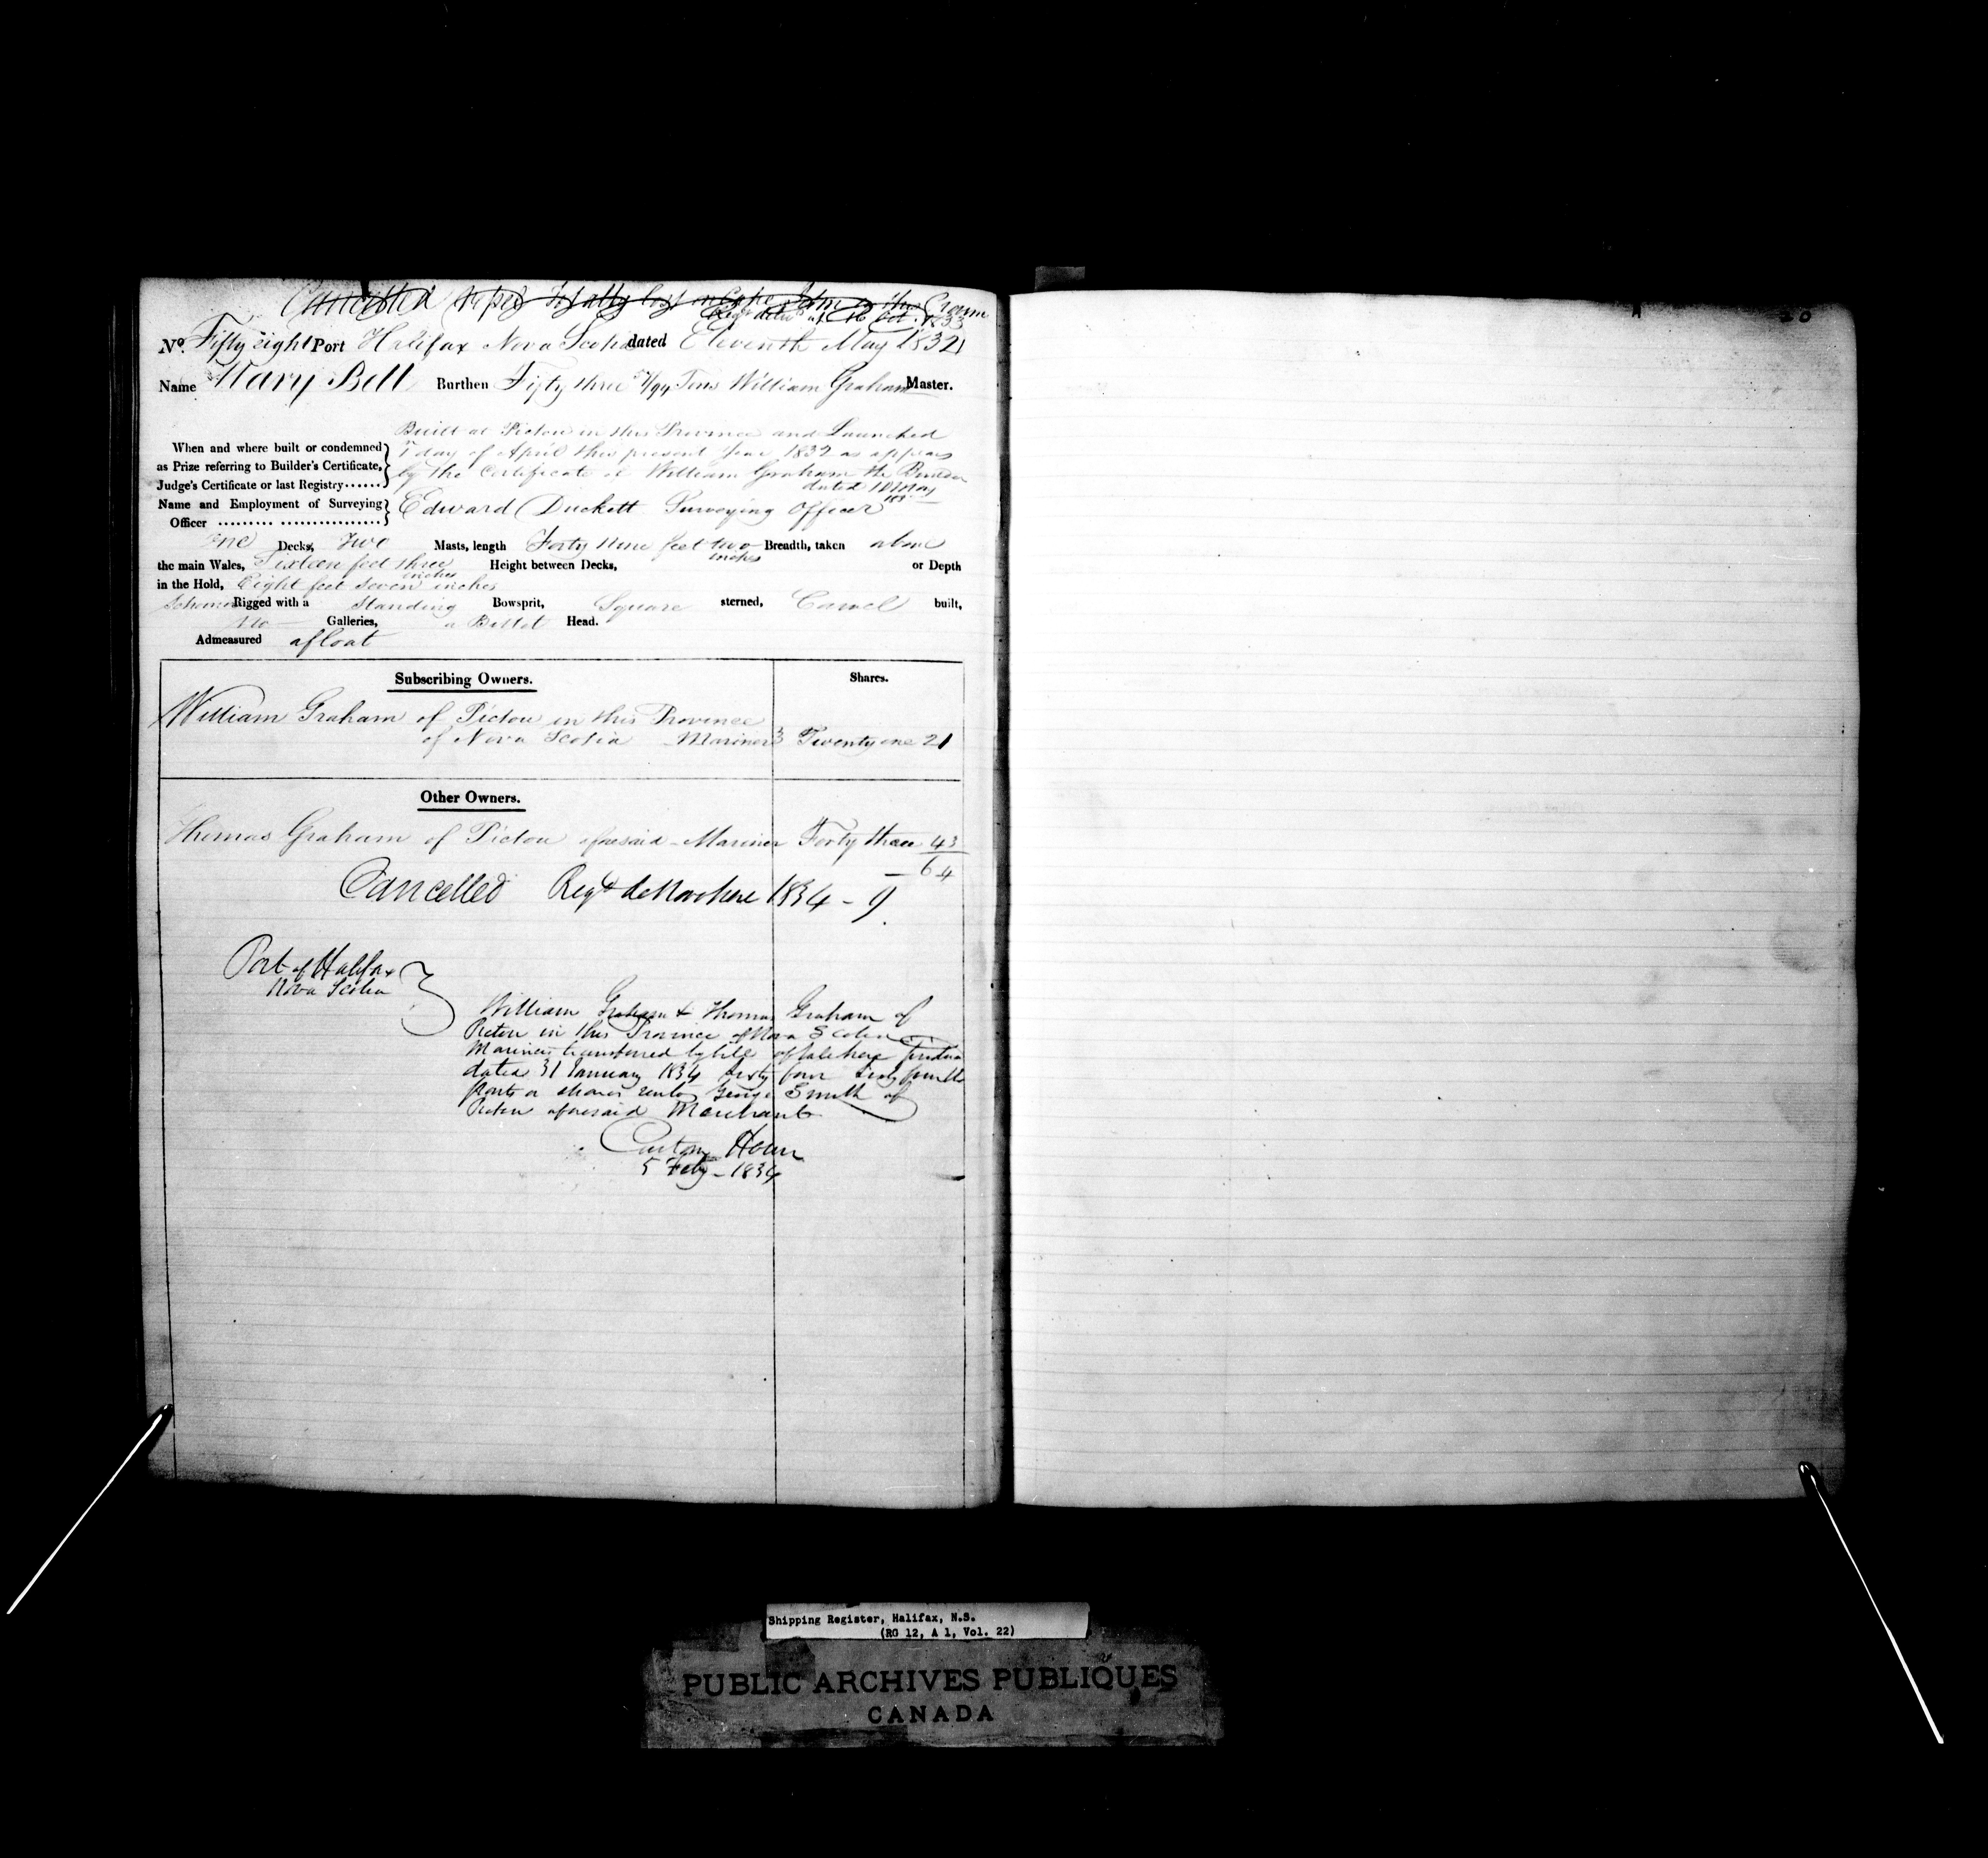 Cancelled totally lost on Cape John in the
Oct. 1833
No. Fifty eight Port Halifax Nova Scotia dated Eleventh May 1832
Name Mary Bell Burthen Fifty three /94 Tons William Graham Master.
Built at Pictou in this Province and Launched
When and where built or condemned
as Prize referring to Builder's Certificate,
Judge's Certificate or last Registry......
7 day of April this present year 1832 as appears
by the Certificate of William Graham the Builder
dated 10 May
183
Name and Employment of Surveying
Officer ......... ................
Edward Duckett Surveying Officer
One Decks, Two Masts, length Forty nine feet two inches Breadth, taken above
the main Wales, Sixteen feet three inches Height between Decks, or Depth
in the Hold, Eight feet seven inches
Schooner Rigged with a Standing Bowsprit, Square sterned, Carvel built,
No Galleries, a Billet Head.
Admeasured afloat
Subscribing Owners. Shares.
William Graham of Pictou in this Province
of Nova Scotia Mariner Twenty one 21
Other Owners.
Thomas Graham of Pictou aforesaid - Mariner Forty three 43
64
Cancelled Regd de Novo here 1834 - 9
Port of Halifax
Nova Scotia
William Graham & Thomas Graham of
Pictou in this Province of Nova Scotia
Mariners transferred by bill of Sale here
dated 31 January 1834 Sixty four Sixty fourth
parts or shares unto George Smith of
Pictou aforesaid Merchant
Custom House
5 Feby - 1834
Shipping Register, Halifax, N.S.
(RG 12, A 1, Vol. 22)
PUBLIC ARCHIVES PUBLIQUES
CANADA